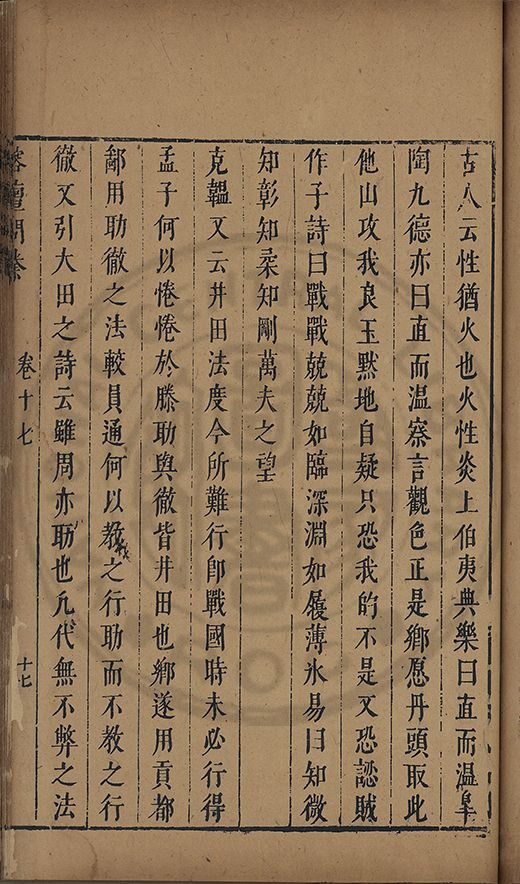 古人云性猶火也火性炎上伯夷典樂曰直而溫皐
陶九德亦曰直而溫察言觀色正是鄉愿丹頭取此
他山攻我良玉默地自疑只恐我的不是又恐認賊
作子詩曰戰戰兢兢如臨深淵如履薄氷易曰知微
知彰知柔知剛萬夫之望
克韞又云井田法度今所難行卽戰國時未必行得
孟子何以惓惓於滕助與徹皆井田也鄉遂用貢都
鄙用助徹之法較員通何以教之行助而不教之行
徹又引大田之詩云雖周亦助也凢代無不弊之法
榕壇問業
卷十七
十七